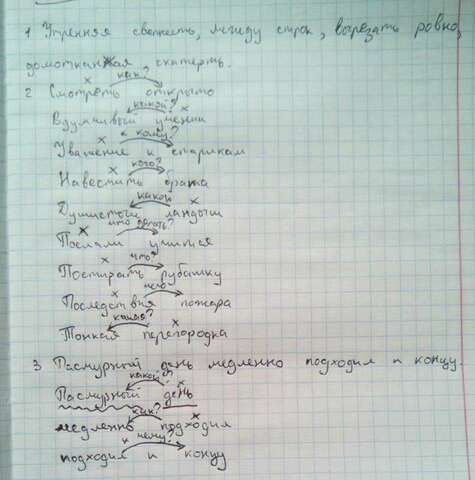 1 Утренняя свежесть, между строк, вырезать ровно,
домотканая скатерть.
как?
2 Смотреть открыто
какой?
Вдумчивый ученик
к кому?
Уважение к старикам
кого?
Навестить брата
какой
Душистый ландыш
что делать?
Послали учиться
что?
Постирать рубашку
чего?
Последствия пожара
какая?
Тонкая перегородка
3 Пасмурный день медленно подходил к концу.
какой
Пасмурный день
как?
медленно подходил
к чему?
подходил к концу